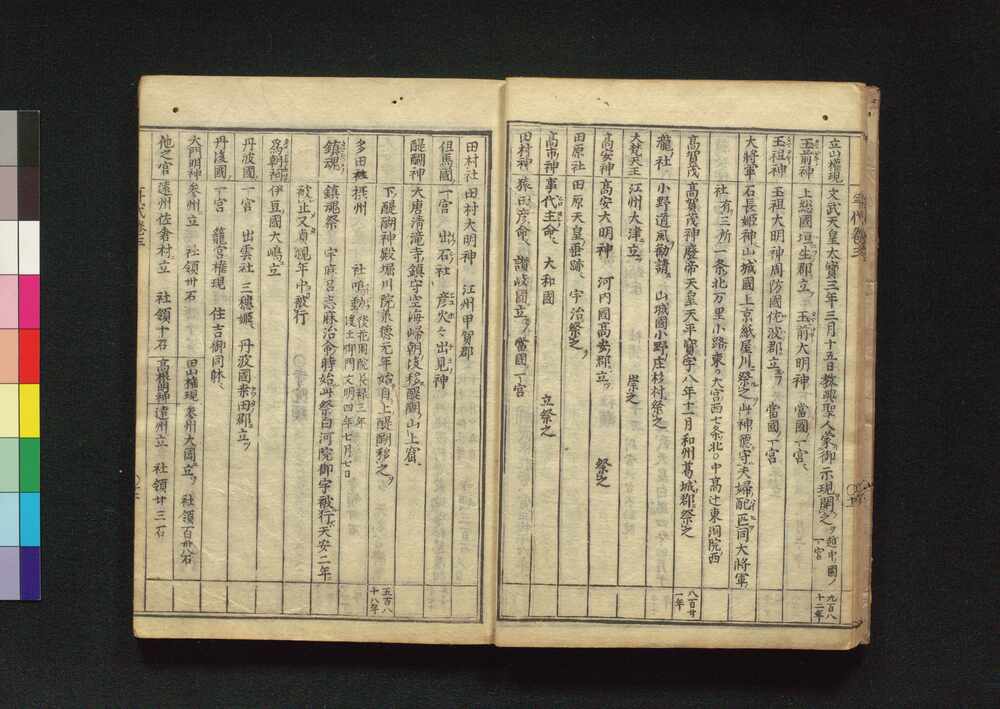 立山權現 文武天皇大寶三年三月十五日教興聖人蒙御示現開之 越中國ノ一宮 九百八十二年
玉前神 上総國垣生郡立 玉前大明神 當國一宮
玉祖神 玉祖大明神周防國佐波郡立 當國一宮
大將軍 石長姫神山城國上京紙屋川祭之此神能守夫婦配匹同大將軍
社有三所一条北万里小路東。大宮西七条北。中高辻東洞院西
高賀茂 高賀茂神廢帝天皇天平寶字八年十一月和州葛城郡祭之 八百廿一年
瀧社 小野道風勧請 山城國小野庄杉村祭之
大梵天王 江州大津立 崇之
高安神 高安大明神 河内國高安郡立 祭之
田原社 田原天皇垂跡 宇治祭之
高市神 事代主命 大和國 立祭之
田村神 猿田彦命 讃岐國立 當國一宮
田村社 田村大明神 江州甲賀郡
但馬國 一宮 出石社 彦火々出見神
醍醐神 大唐清滝寺鎮守空海帰朝後移醍醐山上窟
下醍醐神殿堀川院承德元年始自上醍醐移之
多田社 摂州 社鳴動 後花園院長禄三年 後土御門文明四年七月七日 五百八十八年
鎮魂 鎮魂祭 宇麻呂志麻治命時始此祭白河院御宇被行天安二年
被止又貞観年中被行
為朝祠 伊豆國大嶋立
丹波國 一宮 出雲社 三穂姫 丹波國桑田郡立
丹後國 一宮 籠宮権現 住吉御同躰
大明神 参州立 社領卅石 田山權現 参州大國立 社領百卅石
他之宮 遠州佐倉村立 社領十石 高根明神 遠州立 社領廿三石